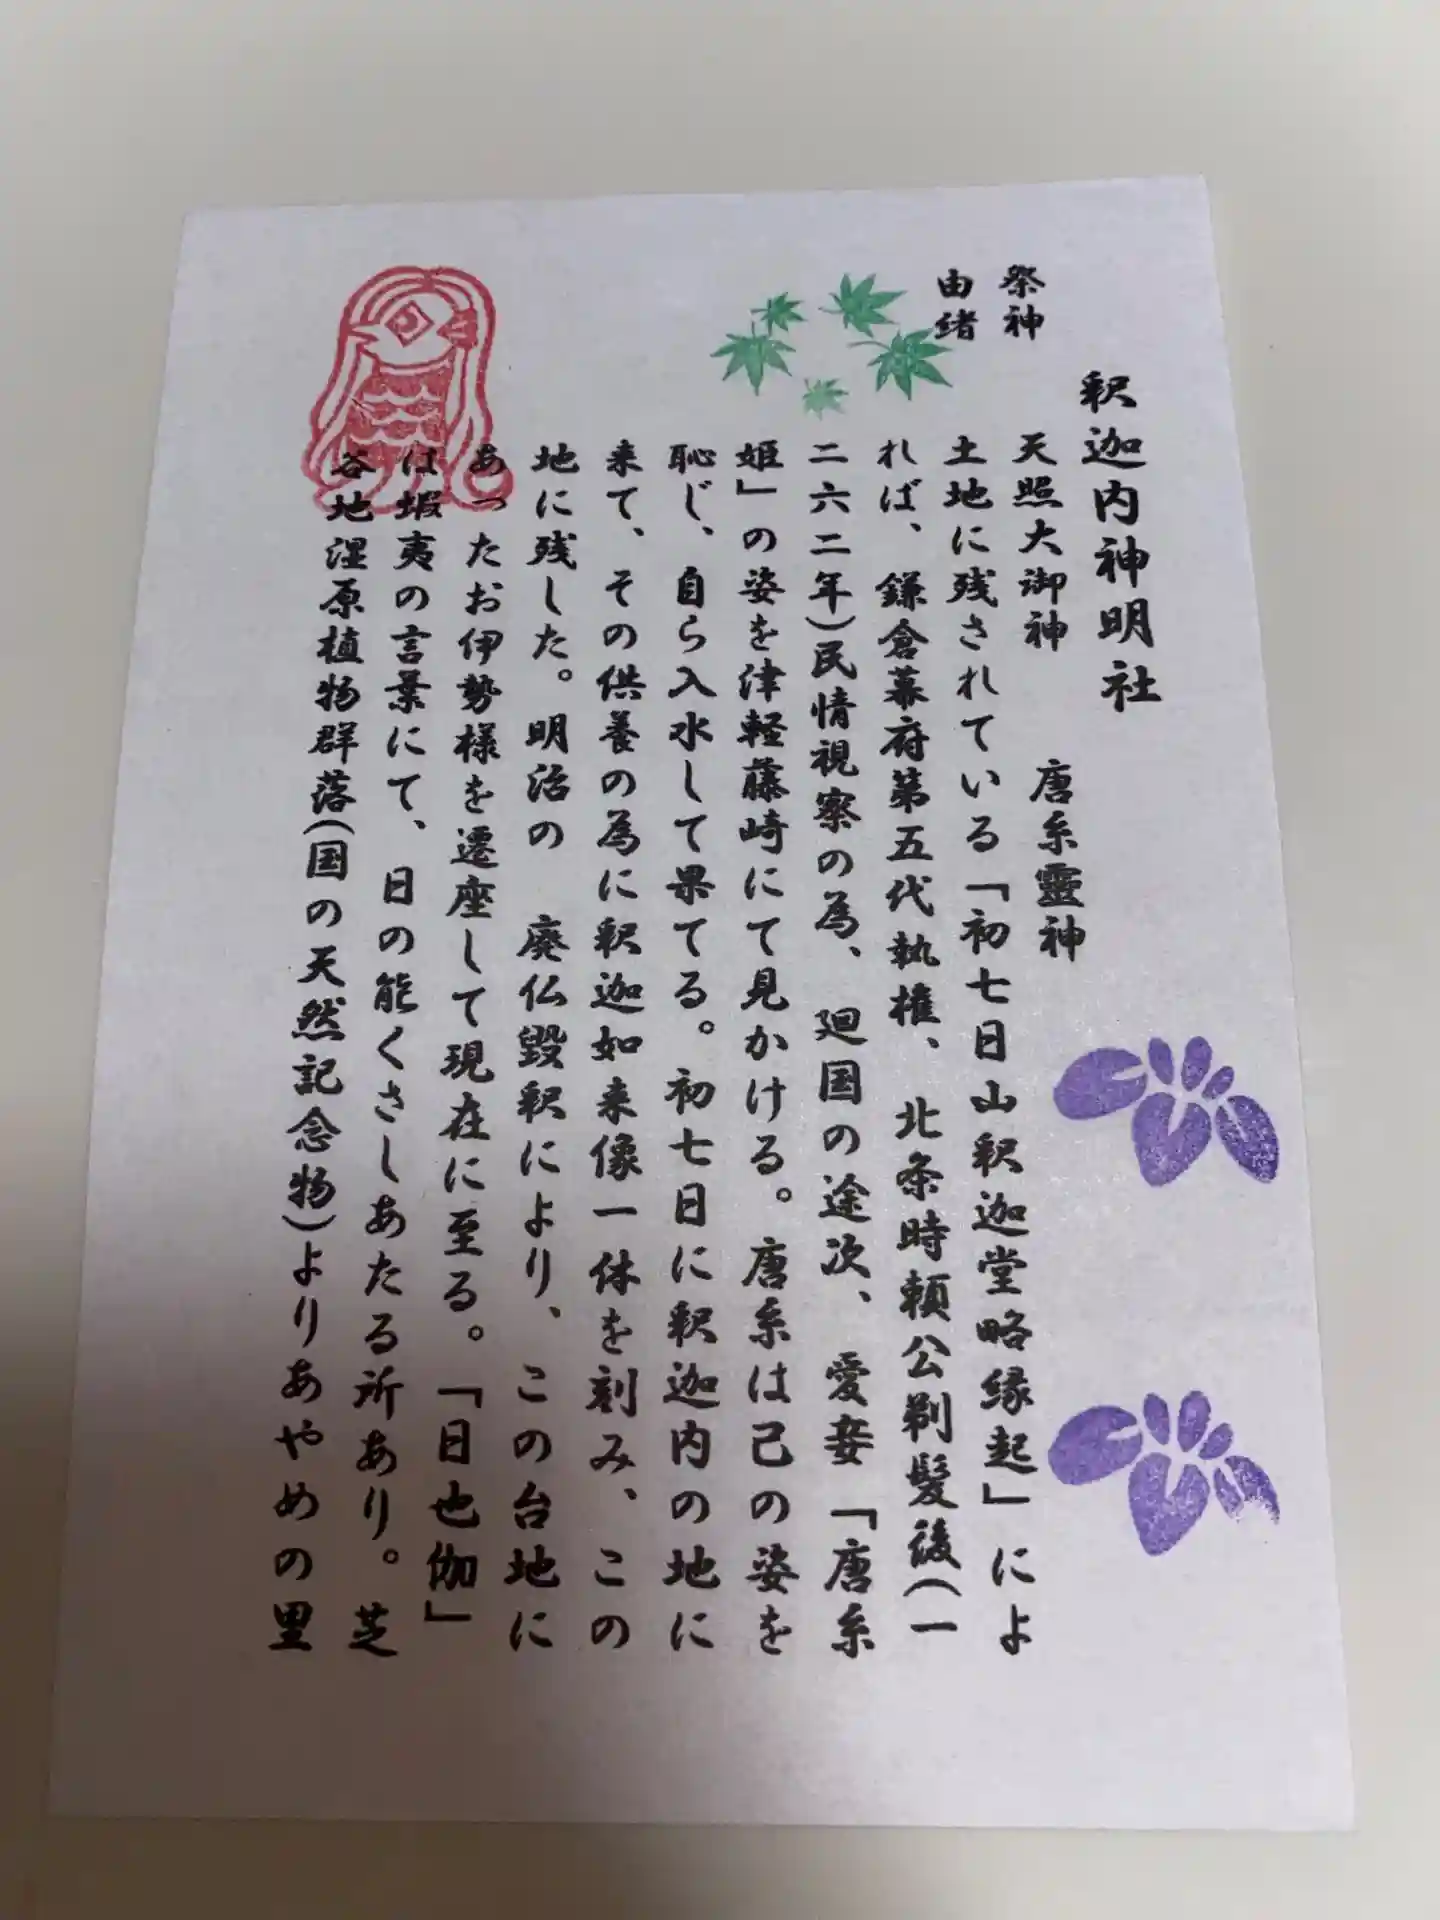 釈迦内神明社
祭神　天照大御神　唐糸靈神
由緒　土地に残されている「初七日山釈迦堂略縁起」によ
れば、鎌倉幕府第五代執権、北条時頼公剃髪後(一
二六二年)民情視察の為、廻国の途次、愛妾「唐糸
姫」の姿を津軽藤崎にて見かける。唐糸は己の姿を
恥じ、自ら入水して果てる。初七日に釈迦内の地に
来て、その供養の為に釈迦如来像一体を刻み、この
地に残した。明治の　廃仏毀釈により、この台地に
あったお伊勢様を遷座して現在に至る。「日也伽」
は蝦夷の言葉にて、日の能くさしあたる所あり。芝
谷地湿原植物群落(国の天然記念物)よりあやめの里